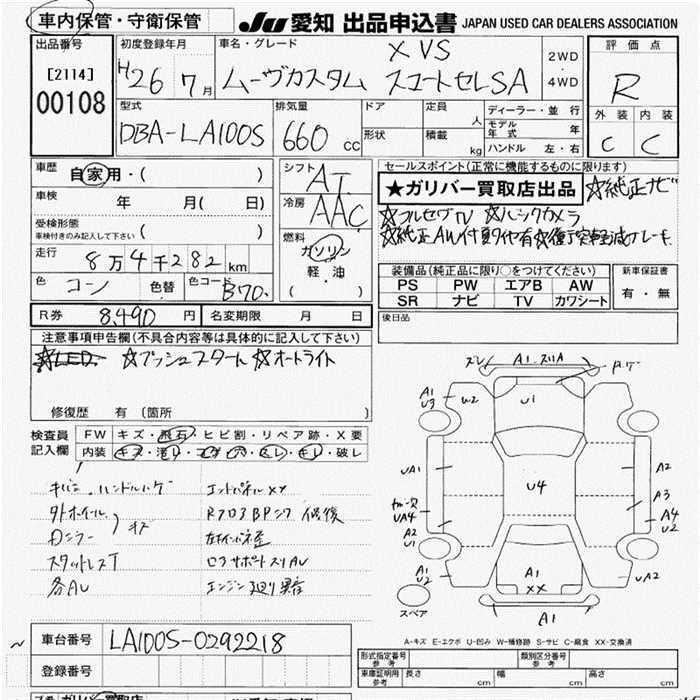 車内保管・守衛保管
JU 愛知 出品申込書 JAPAN USED CAR DEALERS ASSOCIATION
出品番号
[2114]
00108
初度登録年月
H26 7月
車名・グレード
X VS
ムーヴカスタム スマートセレSA
2WD
・
4WD
評価点
R
外装 内装
C C
型式
DBA-LA100S
排気量
660 cc
ドア
形状
定員 人
積載 kg
ディーラー・並行
モデル年式 年
ハンドル 左・右
車歴
自家用・( )
車検 年 月( 日)
受検形態
車検付きのみ記入して下さい ( )
走行
8万4千282 km
色 コーン 色替 色コード B70
シフト AT
冷房 AAC
燃料
ガソリン
軽・油
( )
セールスポイント(正常に機能するものに限ります)
★ガリバー買取店出品 ☆純正ナビ
☆フルセグTV ☆バックカメラ
☆純正AW付夏タイヤ有 ☆衝突軽減ブレーキ
装備品(純正品に限り○をつけてください)
PS PW エアB AW
SR ナビ TV カワシート
新車保証書
有・無
R券 8,490 円 名変期限 月 日
後日品
注意事項申告欄(不具合内容等は具体的に記入して下さい)
☆LED ☆プッシュスタート ☆オートライト
修復歴 有 (箇所 )
検査員
記入欄
FW キズ・飛石・ヒビ割・リペア跡・X要
内装 キズ・汚レ・コゲ・穴・スレ・キレ・破レ
ハンドルハゲ エンドパネルXX
外ホイール キズ
内ミラー
スタットレスT コアサポートスリAU
各AU エンジン廻り異音
ズレ A1
A1
U3
W2
U1
UA1
U4
A2
A3
UA4
A2
U1
A4
U2
A1
U2
A1
XX
UA2
A1
スペア
A-キズ E-エクボ U-凹み W-補修跡 S-サビ C-腐食 XX-交換済
車台番号 LA100S-0292218
登録番号
形式指定番号
参考
類別区分番号
参考
車庫証明用
参考
長さ cm 幅 cm 高さ cm